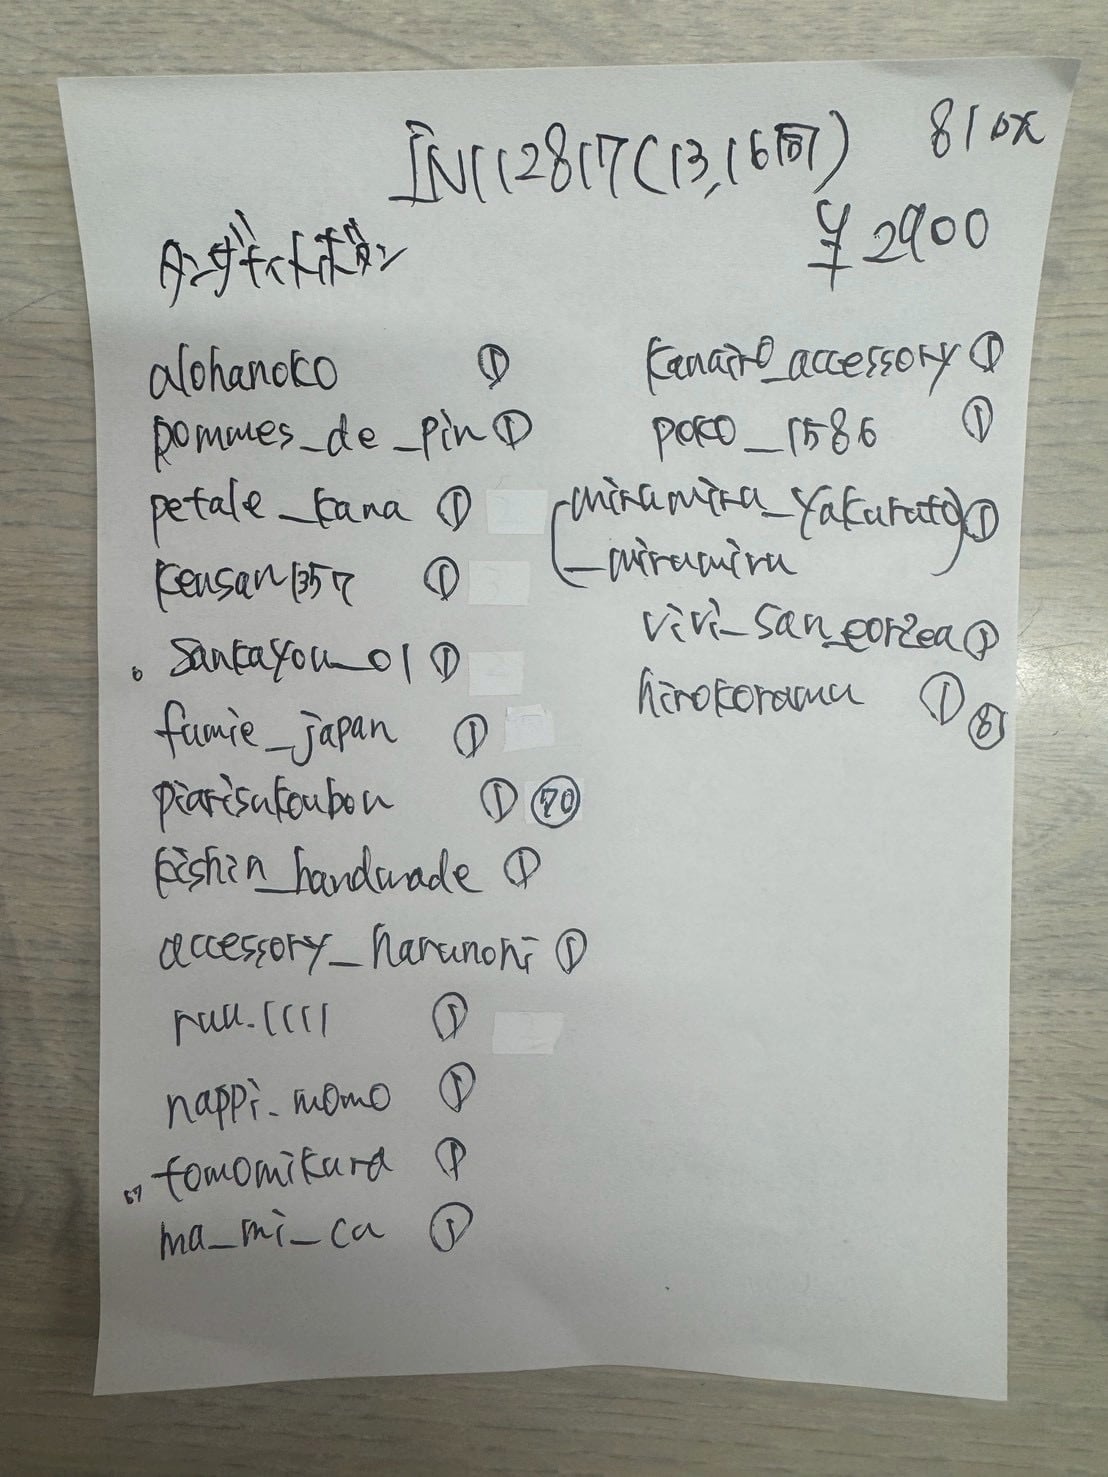 IN112817(13,16問) 810x
¥2900
タンザナイトボタン
alohanoko ①
pommes_de_pin ①
petale_kana ①
kensan1357 ①
sankayou_01 ①
fumie_japan ①
piarisukoubou ① 70
kishin_handmade ①
accessory_harunohi ①
ruu.1111 ①
nappi.momo ①
57 tomomikura ①
ma_mi_ca ①
kanairo_accessory ①
poko_1586 ①
(miramira_yakurato) ①
_miramira
vivi_san_eorzea ①
hirokoramu ① ⑧